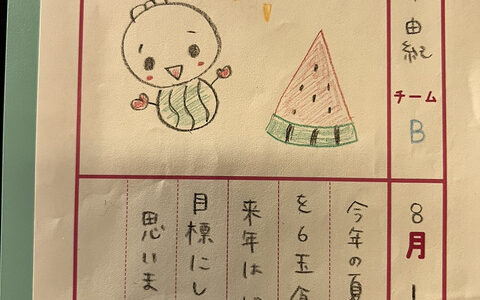 由紀
チーム
B
8月
今年の夏
を6玉食
来年は
目標にし
思いま